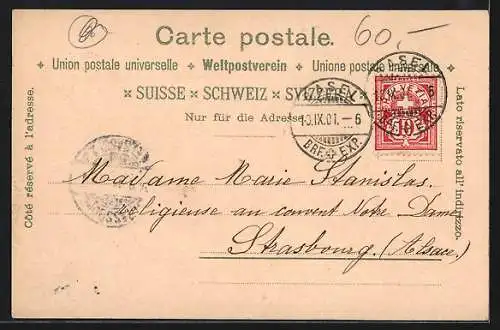 60,–
Carte postale.
Union postale universelle Weltpostverein Unione postale universale
SUISSE SCHWEIZ SVIZZERA
Nur für die Adresse
BASEL
10.IX.01.–6
BRF. EXP.
BASEL
6
HELVETIA
10
Côté réservé à l'adresse.
Lato riservato all'indirizzo.
Madame Marie Stanislas.
religieuse au convent Notre Dame
Strasbourg. (Alsace)